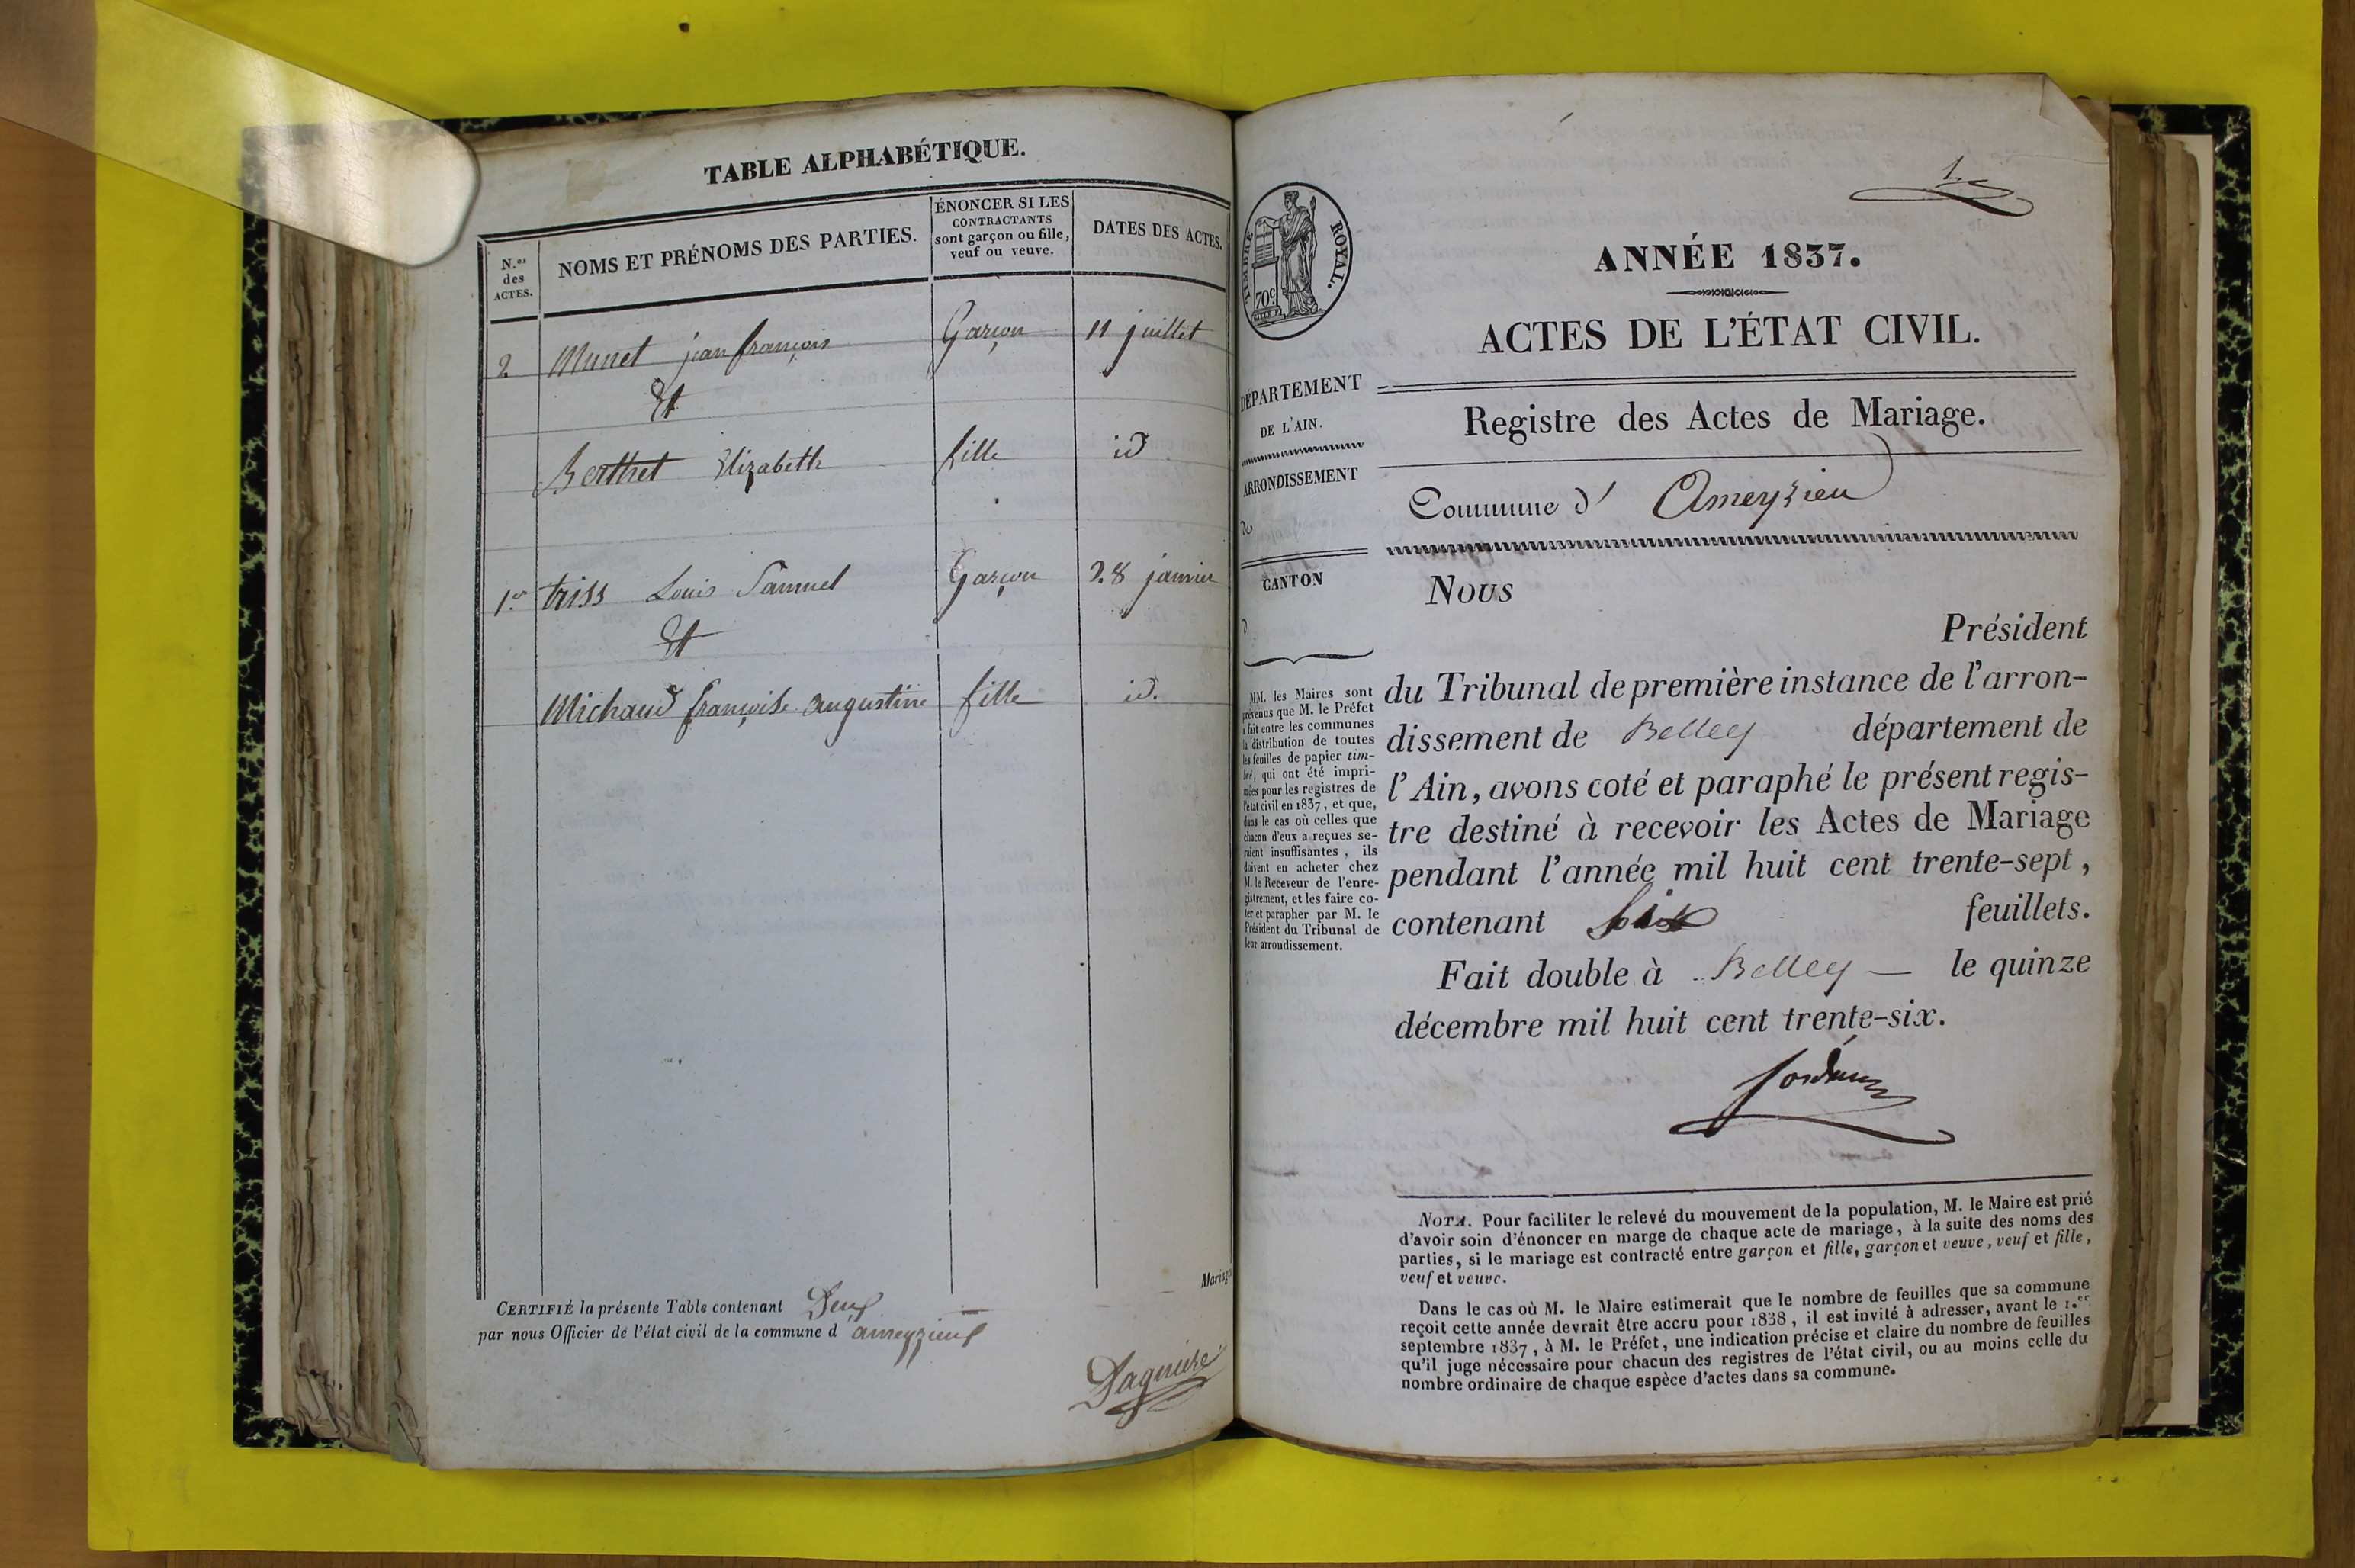 TABLE ALPHABÉTIQUE.
N.os des ACTES.
NOMS ET PRÉNOMS DES PARTIES.
ÉNONCER SI LES
CONTRACTANTS
sont garçon ou fille,
veuf ou veuve.
DATES DES ACTES.
2 Munet jean françois Garçon 11 juillet
Et
Berthet Elizabeth fille id
1.er triss Louis Samuel Garçon 28 janvier
Et
Michaud françoise augustine fille id.
Mariages
CERTIFIÉ la présente Table contenant Deux
par nous Officier de l'état civil de la commune d'ameyzieux
1
TIMBRE ROYAL.
70c
ANNÉE 1837.
ACTES DE L'ÉTAT CIVIL.
DÉPARTEMENT
DE L'AIN.
ARRONDISSEMENT
de
CANTON
d
Registre des Actes de Mariage.
Commune d' Ameyzieu
Nous
Président
du Tribunal de première instance de l'arron-
dissement de Belley département de
l'Ain, avons coté et paraphé le présent regis-
tre destiné à recevoir les Actes de Mariage
pendant l'année mil huit cent trente-sept,
contenant six feuillets.
Fait double à Belley — le quinze
décembre mil huit cent trente-six.
MM. les Maires sont
prévenus que M. le Préfet
a fait entre les communes
la distribution de toutes
les feuilles de papier tim-
bré, qui ont été impri-
mées pour les registres de
l'état civil en 1837, et que,
dans le cas où celles que
chacun d'eux a reçues se-
raient insuffisantes, ils
doivent en acheter chez
M. le Receveur de l'enre-
gistrement, et les faire co-
ter et parapher par M. le
Président du Tribunal de
leur arrondissement.
NOTA. Pour faciliter le relevé du mouvement de la population, M. le Maire est prié
d'avoir soin d'énoncer en marge de chaque acte de mariage, à la suite des noms des
parties, si le mariage est contracté entre garçon et fille, garçon et veuve, veuf et fille,
veuf et veuve.
Dans le cas où M. le Maire estimerait que le nombre de feuilles que sa commune
reçoit cette année devrait être accru pour 1838, il est invité à adresser, avant le 1.er
septembre 1837, à M. le Préfet, une indication précise et claire du nombre de feuilles
qu'il juge nécessaire pour chacun des registres de l'état civil, ou au moins celle du
nombre ordinaire de chaque espèce d'actes dans sa commune.